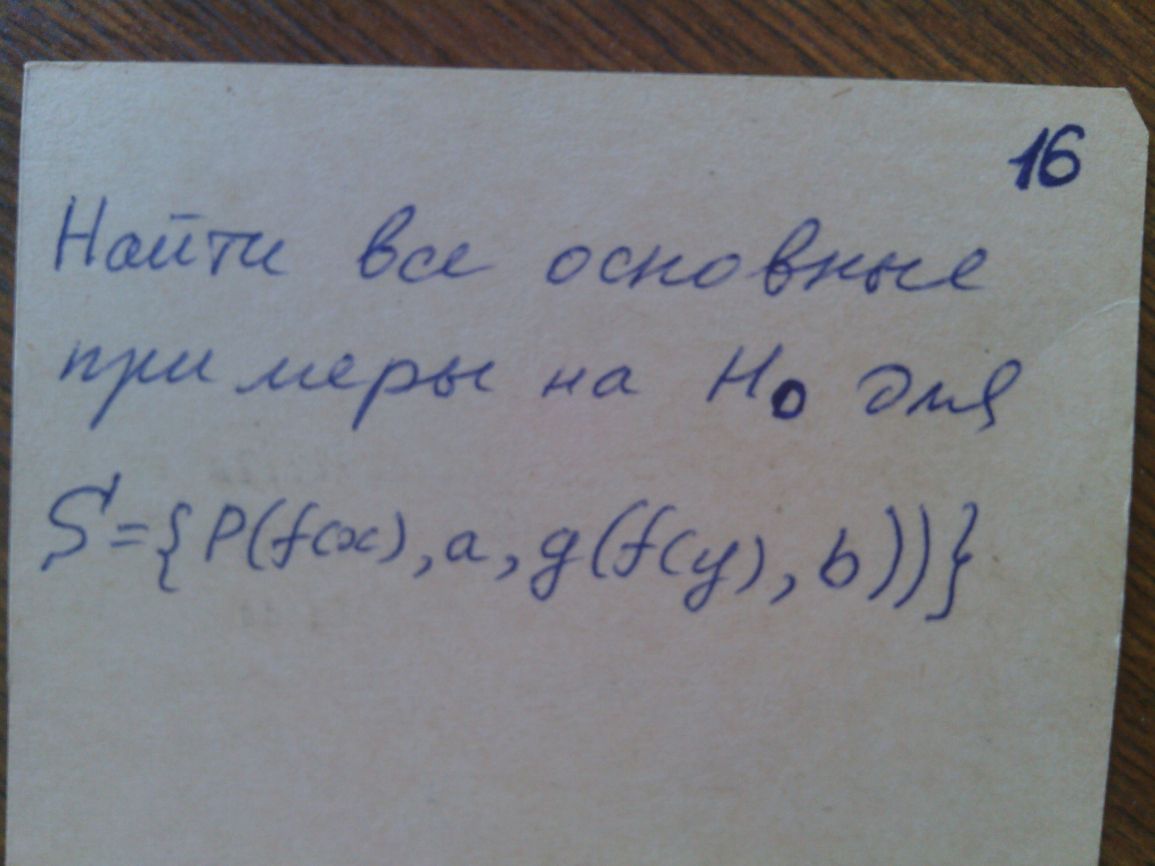 16
Найти все основные
примеры на H₀ для
S={P(f(x),a,g(f(y),b))}